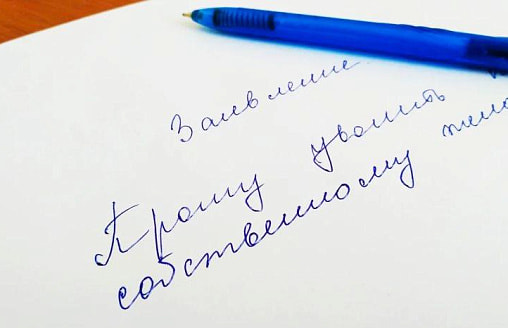 Заявление.
Прошу уволить
собственному жела